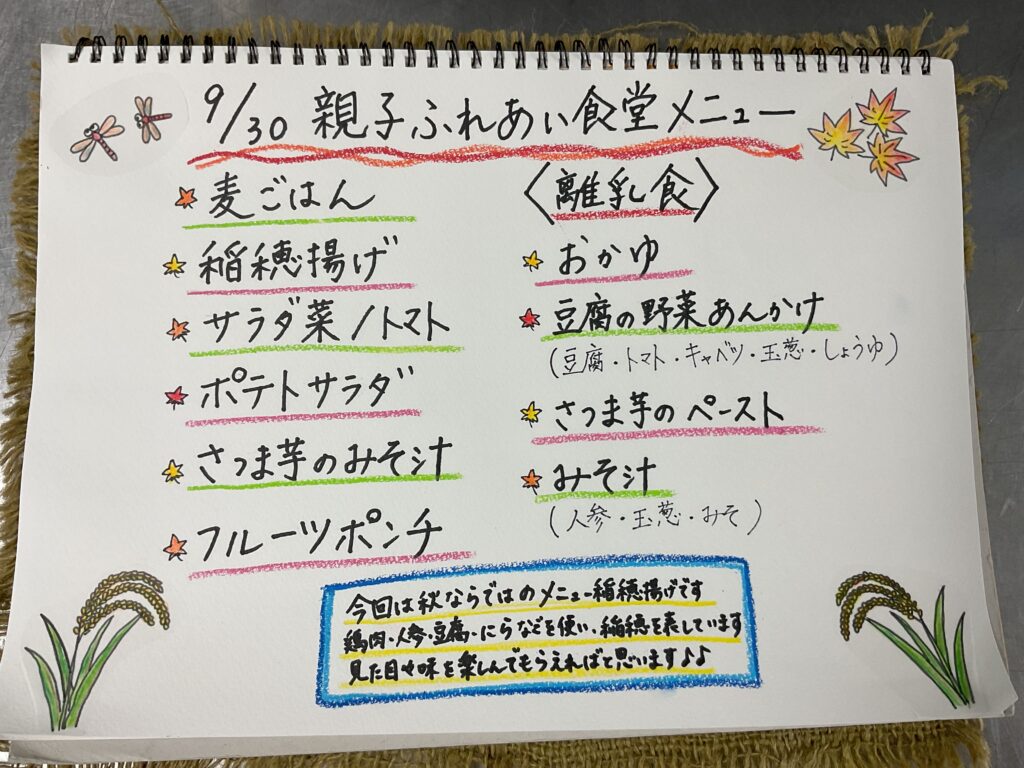 9/30 親子ふれあい食堂メニュー
麦ごはん
稲穂揚げ
サラダ菜/トマト
ポテトサラダ
さつま芋のみそ汁
フルーツポンチ
〈離乳食〉
おかゆ
豆腐の野菜あんかけ
(豆腐・トマト・キャベツ・玉葱・しょうゆ)
さつま芋のペースト
みそ汁
(人参・玉葱・みそ)
今回は秋ならではのメニュー稲穂揚げです
鶏肉・人参・豆腐・にらなどを使い、稲穂を表しています
見た目や味を楽しんでもらえればと思います♪♪